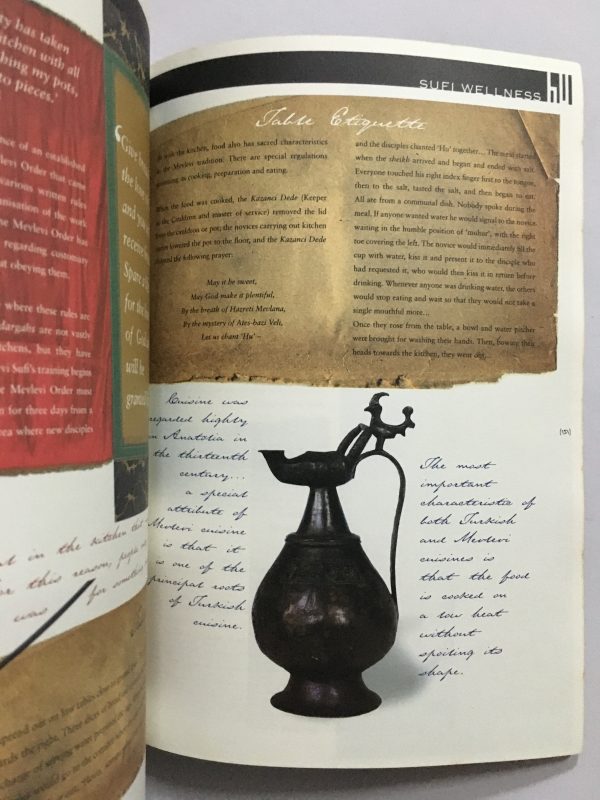 ty has taken
kitchen with all
hing my pots,
to pieces.'
nce of an established
levi Order that came
various written rules
anisation of the work
e Mevlevi Order has
regarding customary
ut obeying them.
where these rules are
dargahs are not vastly
kitchens, but they have
vi Sufi's training begins
e Mevlevi Order must
n for three days from a
rea where new disciples
at in the kitchen that
for this reason,
was for
SUFI WELLNESS
Table Etiquette
with the kitchen, food also has sacred characteristics
in the Mevlevi tradition. There are special regulations
cooking, preparation and eating.
When the food was cooked, the Kazanci Dede (Keeper
of the Cauldron and master of service) removed the lid
from the cauldron or pot; the novices carrying out kitchen
duties lowered the pot to the floor, and the Kazanci Dede
the following prayer:
May it be sweet,
May God make it plentiful,
By the breath of Hazreti Mevlana,
By the mystery of Ates-bazi Veli,
Let us chant 'Hu'–
and the disciples chanted 'Hu' together... The meal started
when the sheikh arrived and began and ended with salt.
Everyone touched his right index finger first to the tongue,
then to the salt, tasted the salt, and then began to eat.
All ate from a communal dish. Nobody spoke during the
meal. If anyone wanted water he would signal to the novice
waiting in the humble position of 'muhur', with the right
toe covering the left. The novice would immediately fill the
cup with water, kiss it and present it to the disciple who
had requested it, who would then kiss it in return before
drinking. Whenever anyone was drinking water, the others
would stop eating and wait so that they would not take a
single mouthful more...
Once they rose from the table, a bowl and water pitcher
were brought for washing their hands. Then, bowing their
heads towards the kitchen, they went out.
Cuisine was
regarded highly
in Anatolia in
the thirteenth
century...
a special
attribute of
Mevlevi cuisine
is that it
is one of the
principal roots
of Turkish
cuisine.
(151)
The most
important
characteristic of
both Turkish
and Mevlevi
cuisines is
that the food
is cooked on
a low heat
without
spoiling its
shape.